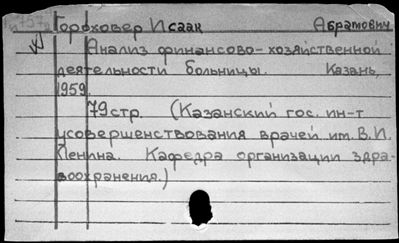 Гороховер Исаак Абрамович
Анализ финансово-хозяйственной
деятельности больницы. Казань,
1959.
79 стр. (Казанский гос. ин-т
усовершенствования врачей им. В.И.
Ленина. Кафедра организации здра-
воохранения.)